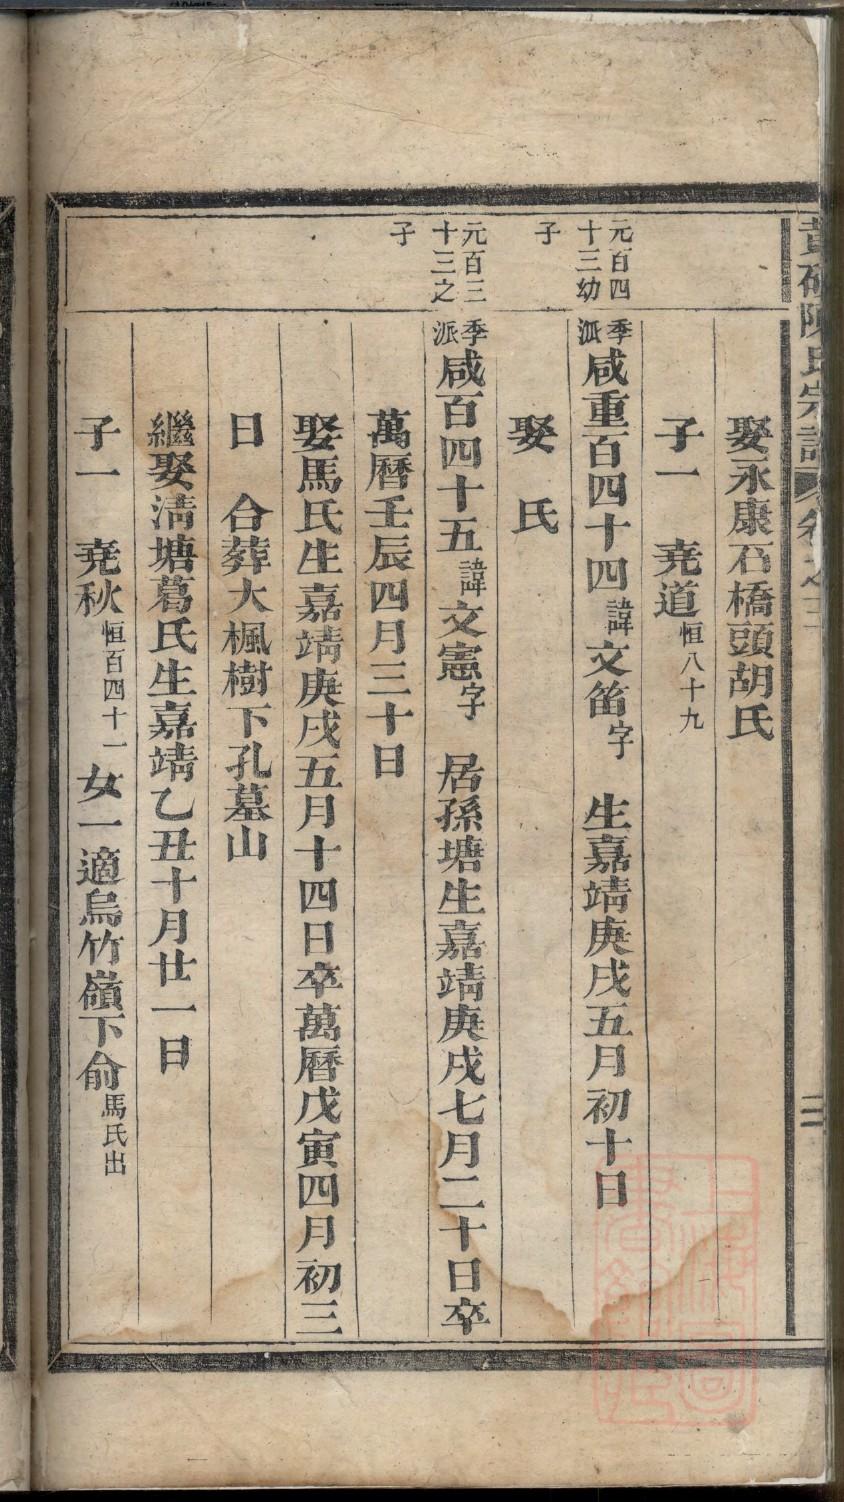 陳氏宗譜 卷之三
娶永康石橋頭胡氏
子一 堯道恒八十九
元百四十三幼子
季派咸重百四十四諱文笛字 生嘉靖庚戌五月初十日
娶 氏
元百三十三之子
季派咸百四十五諱文憲字 居孫塘生嘉靖庚戌七月二十日卒
萬曆壬辰四月三十日
娶馬氏生嘉靖庚戌五月十四日卒萬曆戊寅四月初三
日 合葬大楓樹下孔墓山
繼娶清塘葛氏生嘉靖乙丑十月廿一日
子一 堯秋恒百四十一女一適烏竹嶺下俞馬氏出